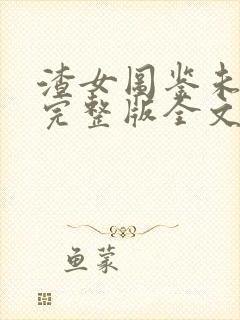 渣女图鉴未
完整版全文
鱼蒙